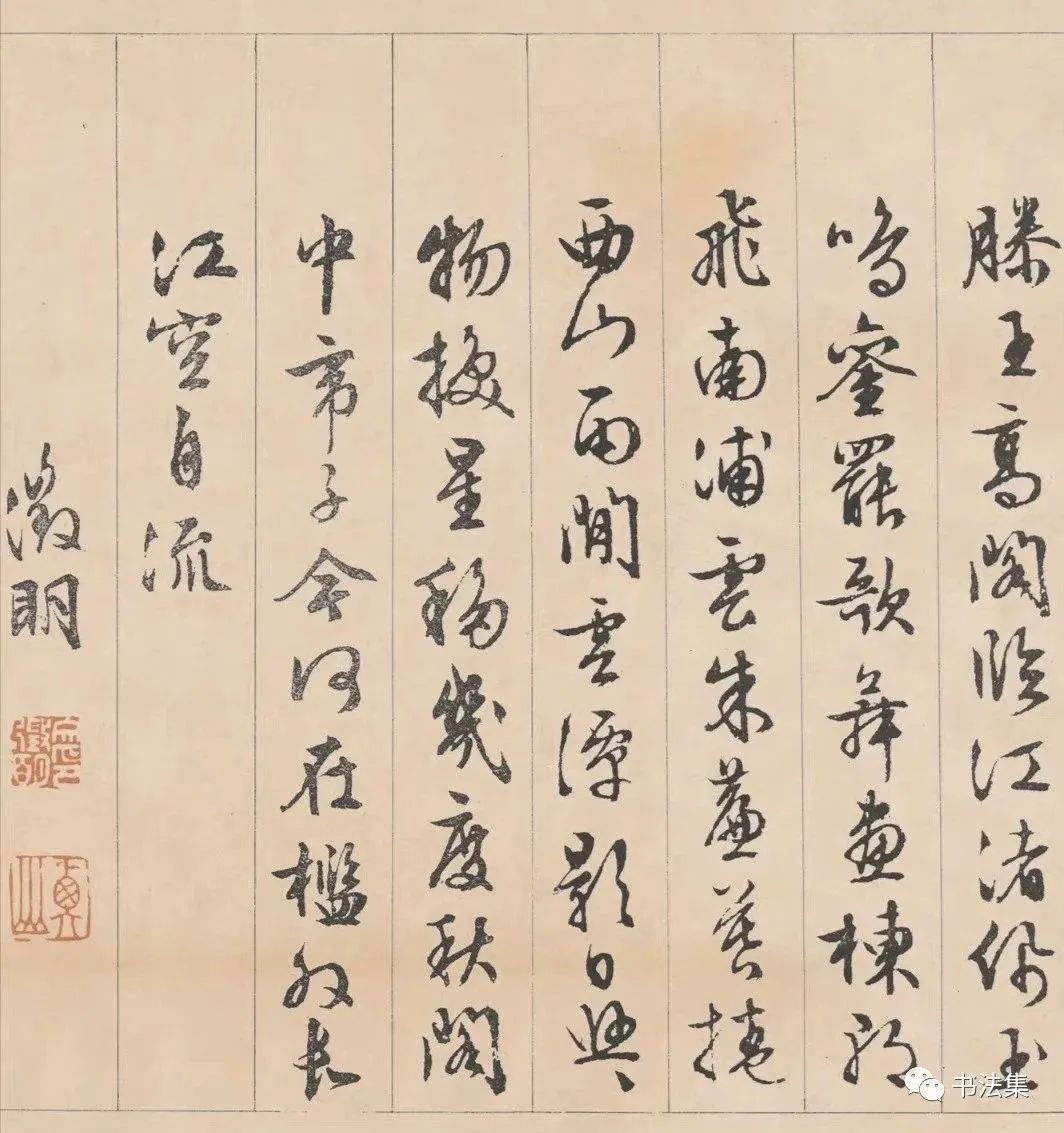 滕王高閣臨江渚佩玉
鳴鑾罷歌舞畫棟朝
飛南浦雲朱簾暮捲
西山雨閒雲潭影日悠〻
物換星移幾度秋閣
中帝子今何在檻外長
江空自流
徵明
文徵明印
衡山
书法集